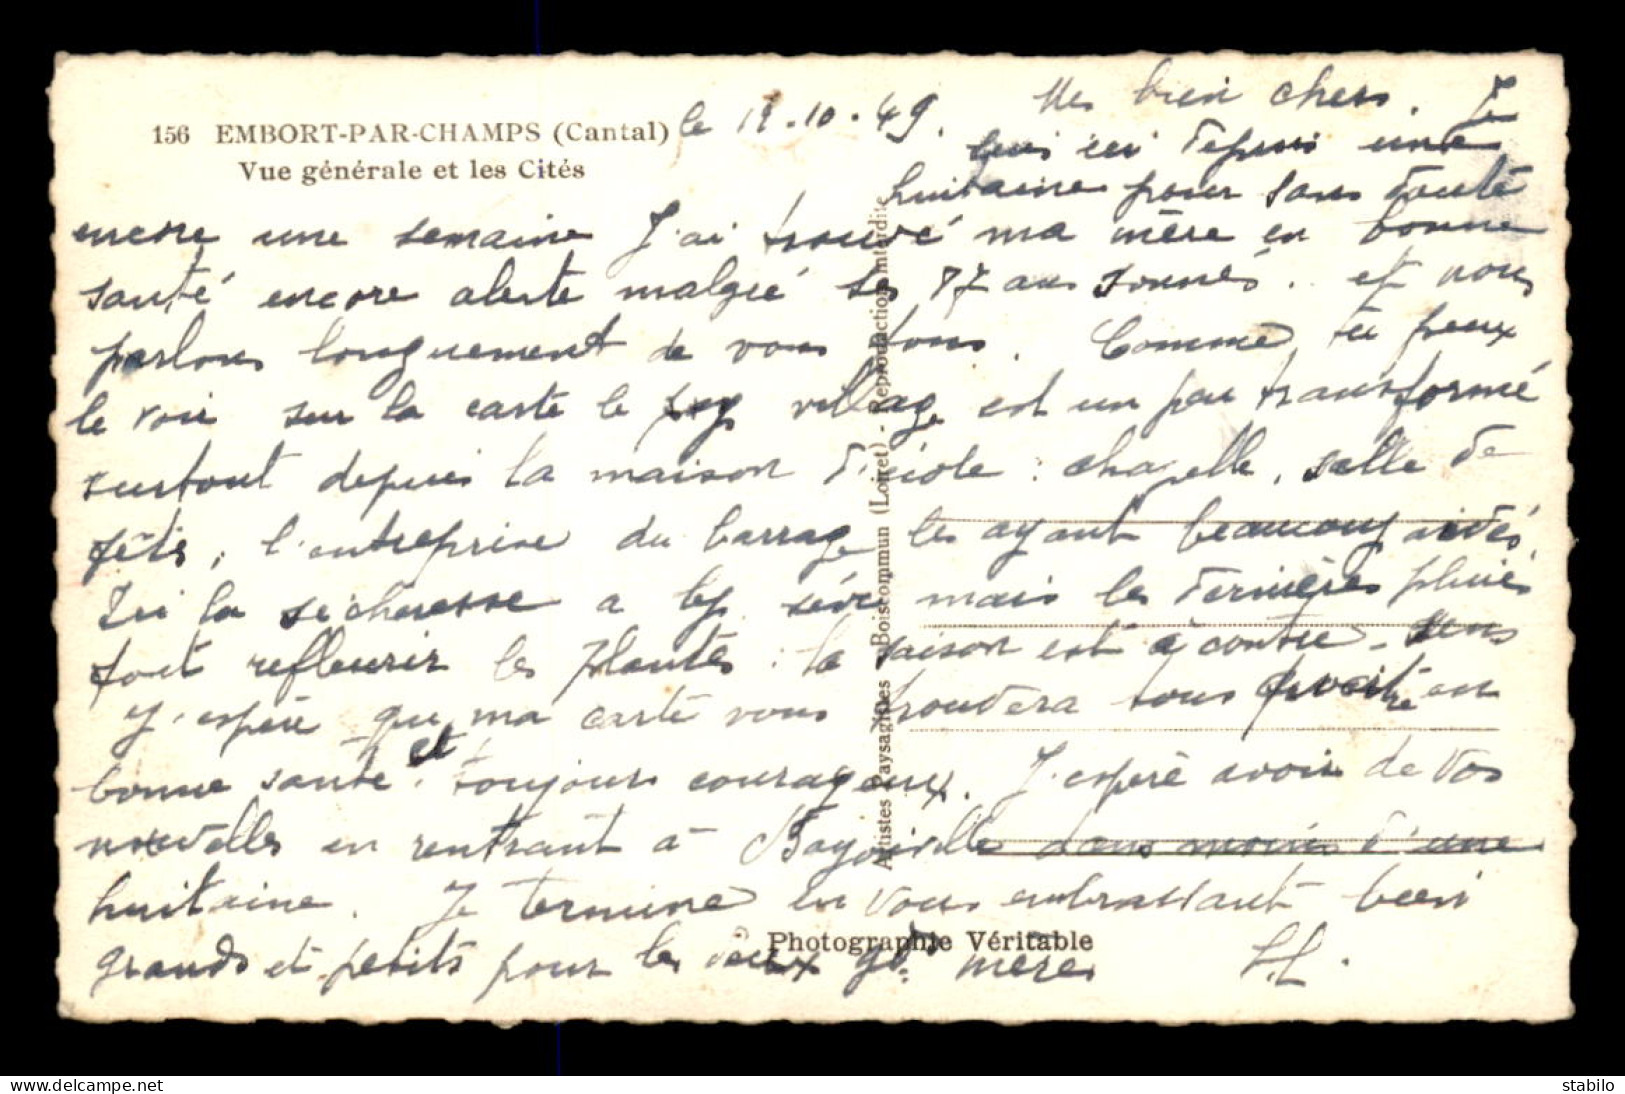 156 EMBORT-PAR-CHAMPS (Cantal)
Vue générale et les Cités
le 12.10.49.
Mes bien chers. Je
suis ici depuis une
huitaine pour sans doute
encore une semaine J'ai trouvé ma mère en bonne
santé encore alerte malgré ses 87 ans sonnés.. et nous
parlons longuement de vous tous. Comme tu peux
le voir sur la carte le village est un peu transformé
surtout depuis la maison d'école : chapelle, salle de
fêtes, l'entreprise du barrage les ayant beaucoup aidés.
Ici la sécheresse a sévi mais les dernières pluies
font refleurir les plantes : la saison est à contre-sens
J'espère que ma carte vous trouvera tous en
bonne santé et toujours courageux. J'espère avoir de vos
nouvelles en rentrant à dans moins d'une
huitaine. Je termine en vous embrassant bien
grands et petits pour les deux gdes mères
Artistes Paysagistes Boiscommun (Loiret) - Reproduction interdite
Photographie Véritable
delcampe.net
stabilo